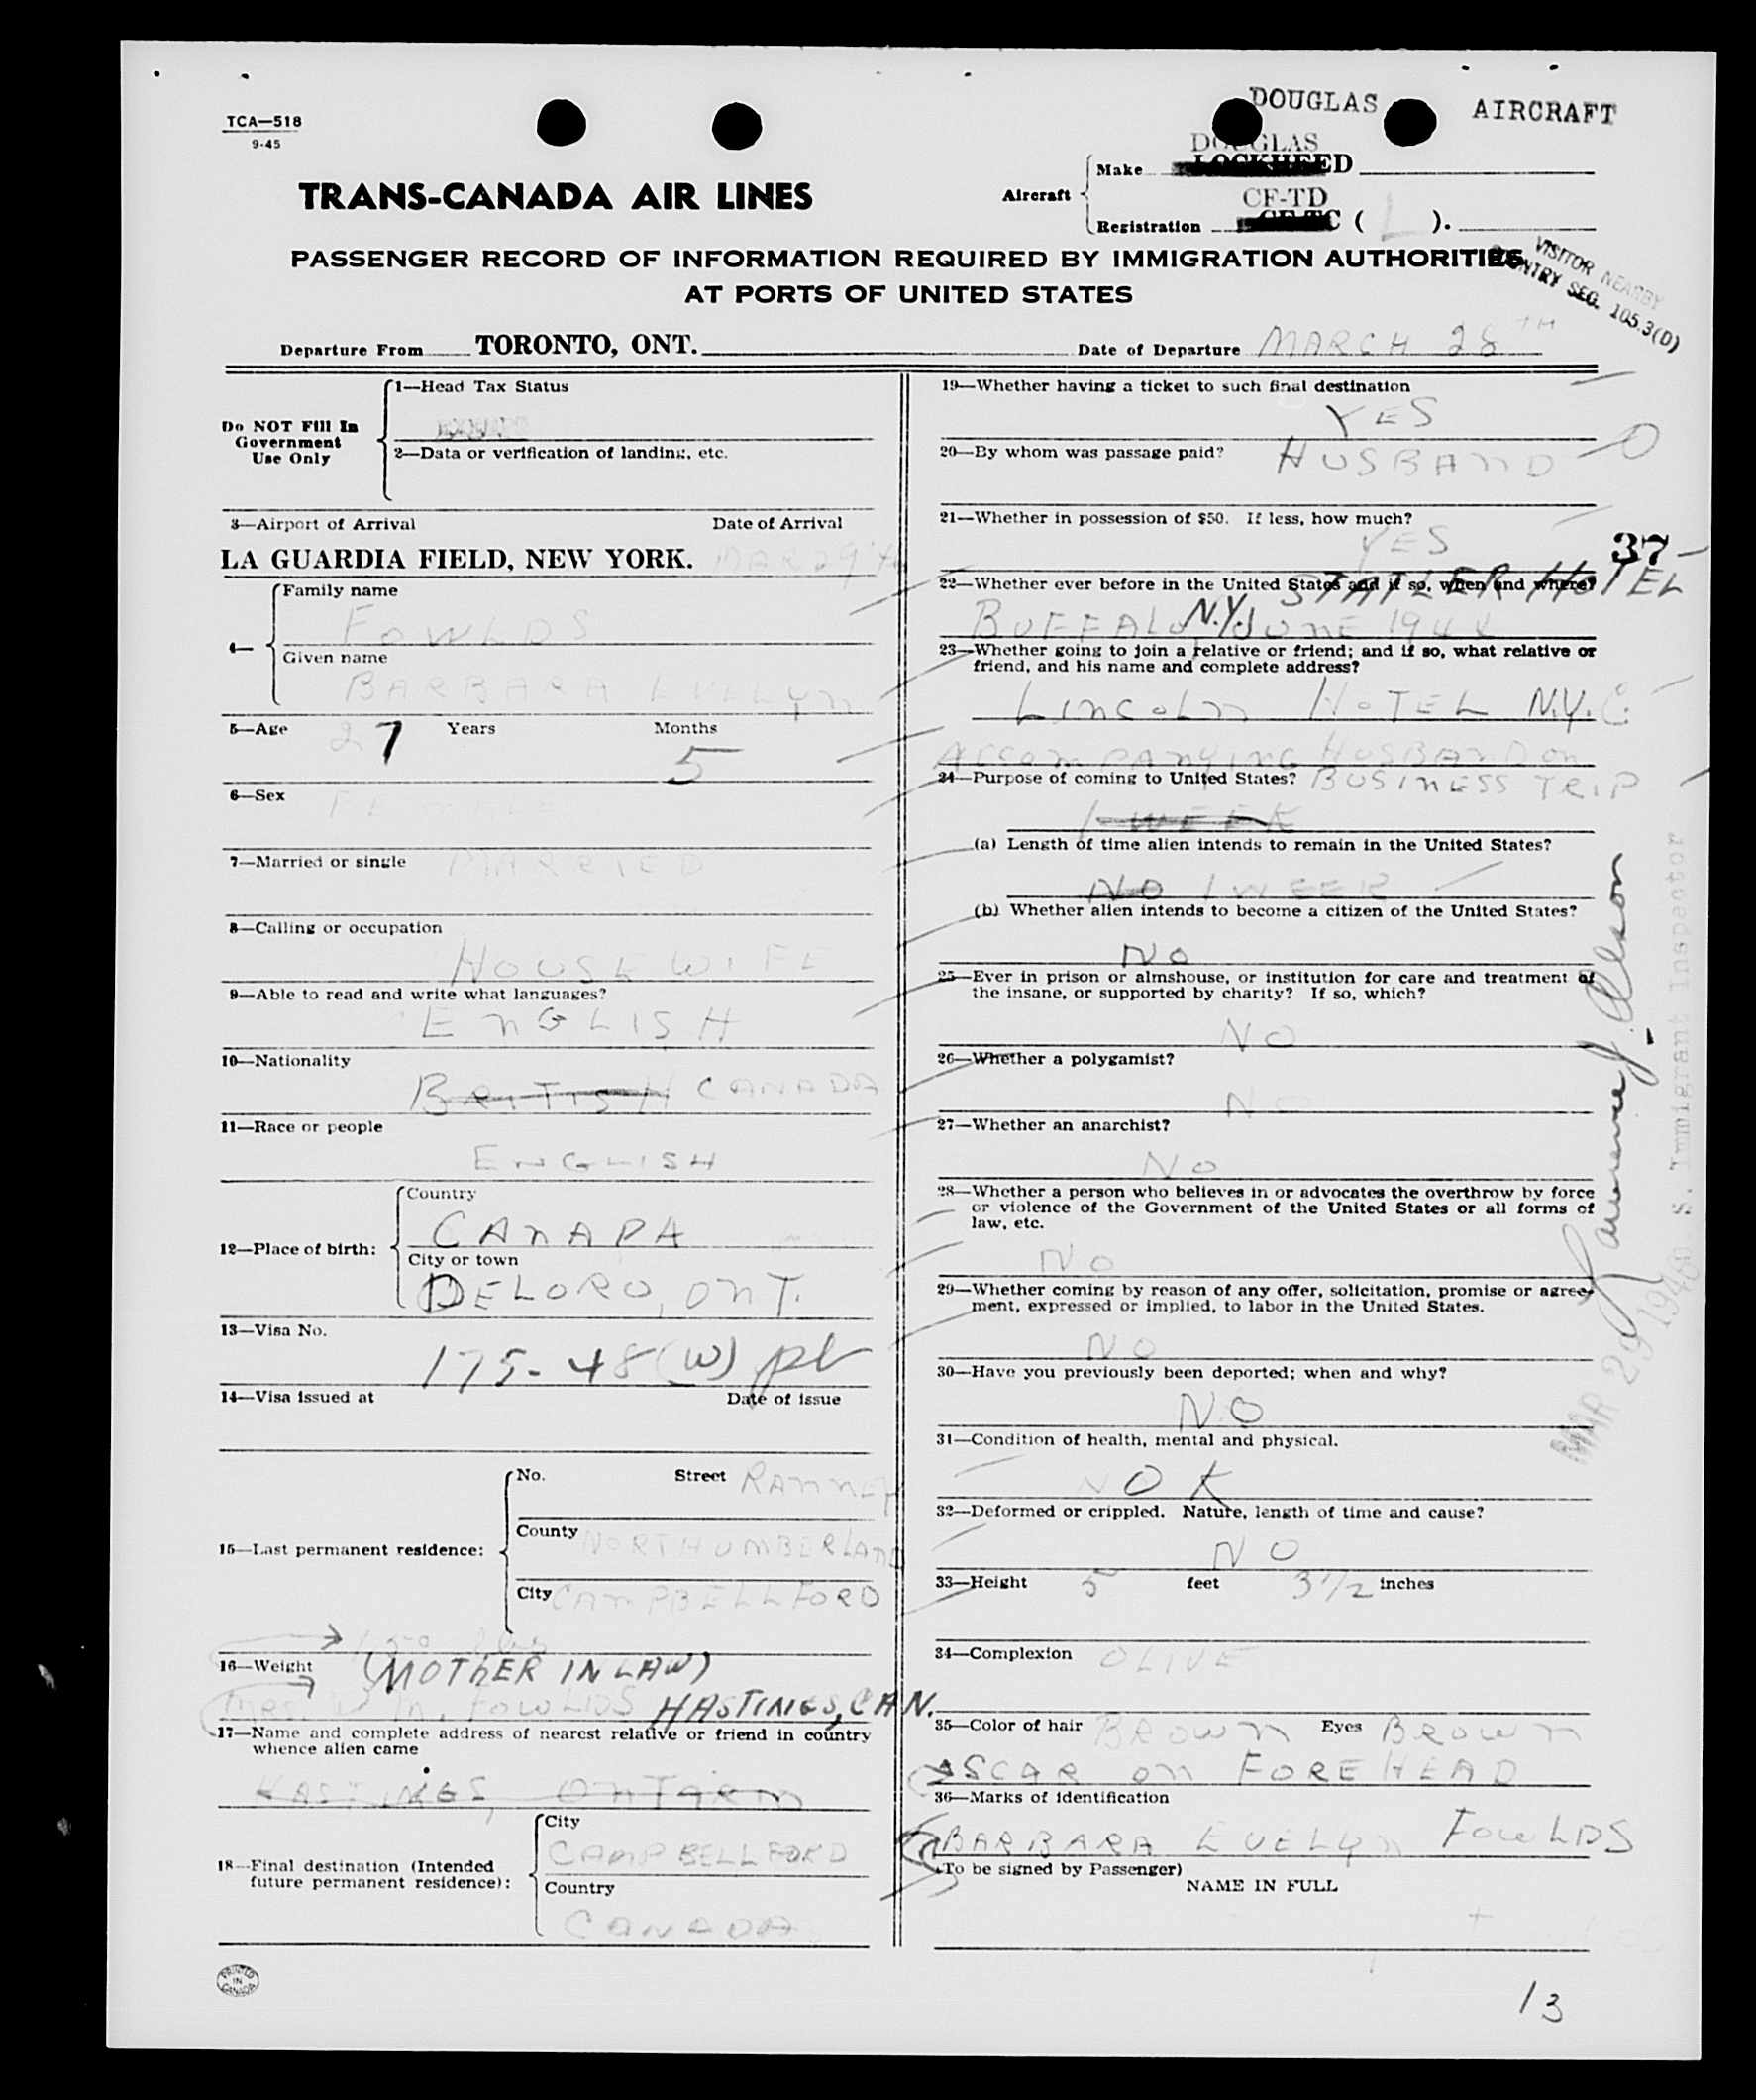 DOUGLAS AIRCRAFT
TCA—518
9-45
DOUGLAS
Aircraft
Make LOCKHEED
CF-TD
Registration CF-TC ( L ).
TRANS-CANADA AIR LINES
PASSENGER RECORD OF INFORMATION REQUIRED BY IMMIGRATION AUTHORITIES
AT PORTS OF UNITED STATES
VISITOR NEARBY
COUNTRY SEG. 105.3(D)
Departure From TORONTO, ONT.
Date of Departure MARCH 28TH
Do NOT Fill In
Government
Use Only
1—Head Tax Status
2—Data or verification of landing, etc.
3—Airport of Arrival Date of Arrival
LA GUARDIA FIELD, NEW YORK. MAR 29
4—
Family name
FOWLDS
Given name
BARBARA EVELYN
5—Age 27 Years Months
5
6—Sex
FEMALE
7—Married or single MARRIED
8—Calling or occupation
HOUSEWIFE
9—Able to read and write what languages?
ENGLISH
10—Nationality
BRITISH CANADA
11—Race or people
ENGLISH
12—Place of birth:
Country
CANADA
City or town
DELORO, ONT.
13—Visa No.
175-48(W)
14—Visa issued at Date of issue
15—Last permanent residence:
No. Street RANNEY
County NORTHUMBERLAND
City CAMPBELLFORD
16—Weight (MOTHER IN LAW)
MRS. FOWLDS HASTINGS, CAN.
17—Name and complete address of nearest relative or friend in country
whence alien came
HASTINGS, ONTARIO
18—Final destination (Intended
future permanent residence):
City
CAMPBELLFORD
Country
CANADA
PRINTED
IN
CANADA
19—Whether having a ticket to such final destination
YES
20—By whom was passage paid? HUSBAND
21—Whether in possession of $50. If less, how much?
YES
37
22—Whether ever before in the United States and if so, when and where?
STATLER HOTEL
BUFFALO N.Y. JUNE 1944
23—Whether going to join a relative or friend; and if so, what relative or
friend, and his name and complete address?
LINCOLN HOTEL N.Y.C.
ACCOMPANYING HUSBAND ON
24—Purpose of coming to United States? BUSINESS TRIP
1 WEEK
(a) Length of time alien intends to remain in the United States?
NO 1 WEEK
(b) Whether alien intends to become a citizen of the United States?
NO
25—Ever in prison or almshouse, or institution for care and treatment of
the insane, or supported by charity? If so, which?
NO
26—Whether a polygamist?
NO
27—Whether an anarchist?
NO
28—Whether a person who believes in or advocates the overthrow by force
or violence of the Government of the United States or all forms of
law, etc.
NO
29—Whether coming by reason of any offer, solicitation, promise or agree-
ment, expressed or implied, to labor in the United States.
NO
30—Have you previously been deported; when and why?
NO
31—Condition of health, mental and physical.
OK
32—Deformed or crippled. Nature, length of time and cause?
NO
33—Height 5 feet 3 1/2 inches
34—Complexion OLIVE
35—Color of hair BROWN Eyes BROWN
SCAR ON FOREHEAD
36—Marks of identification
BARBARA EVELYN FOWLDS
(To be signed by Passenger)
NAME IN FULL
S. Immigrant Inspector
MAR 29 1948
13